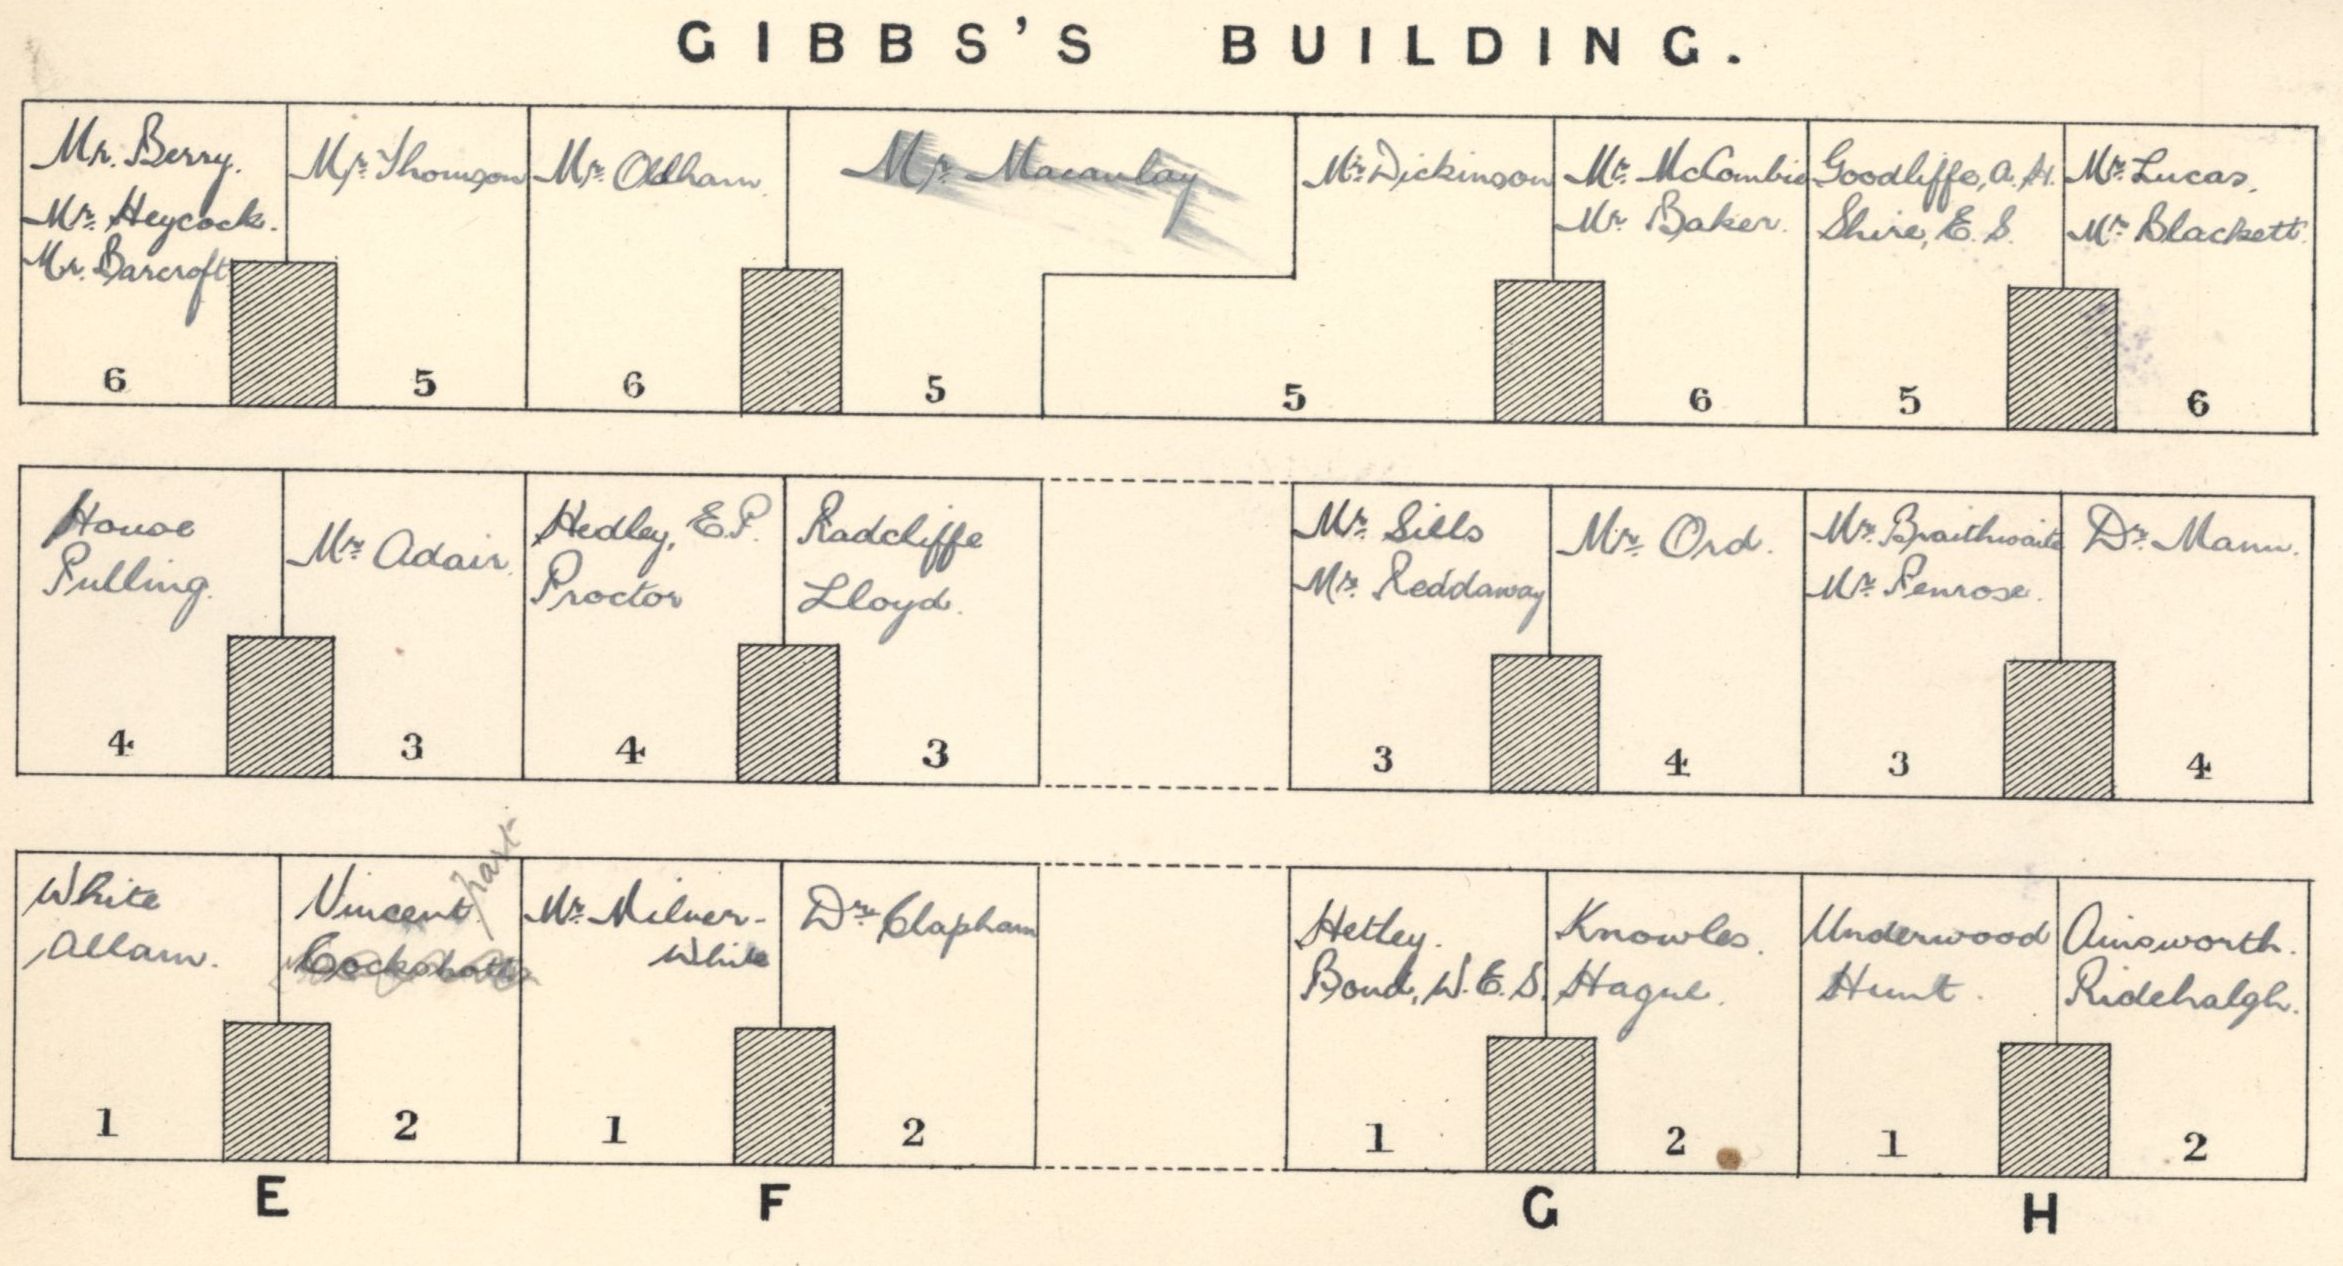 GIBBS'S BUILDING.
Mr. Berry.
Mr. Heycock.
Mr. Barcroft
6
Mr. Thomson
5
Mr. Oldham
6
Mr. Macaulay
5
Mr. Dickinson
5
Mr. McCombie
Mr. Baker.
6
Goodliffe, A. H.
Shire, E. S.
5
Mr. Lucas.
Mr. Blackett.
6
House
Pulling.
4
Mr. Adair.
3
Hedley, E.P.
Proctor
4
Radcliffe
Lloyd.
3
Mr. Sills
Mr. Reddaway
3
Mr. Ord.
4
Mr. Braithwaite
Mr. Penrose.
3
Dr. Mann.
4
White
Allam.
1
Vincent. part
Cockshott
2
Mr. Milner-
White
1
Dr. Clapham
2
Hetley.
Bond, W.E.S.
1
Knowles.
Hague.
2
Underwood
Hunt.
1
Ainsworth.
Ridehalgh.
2
E
F
G
H